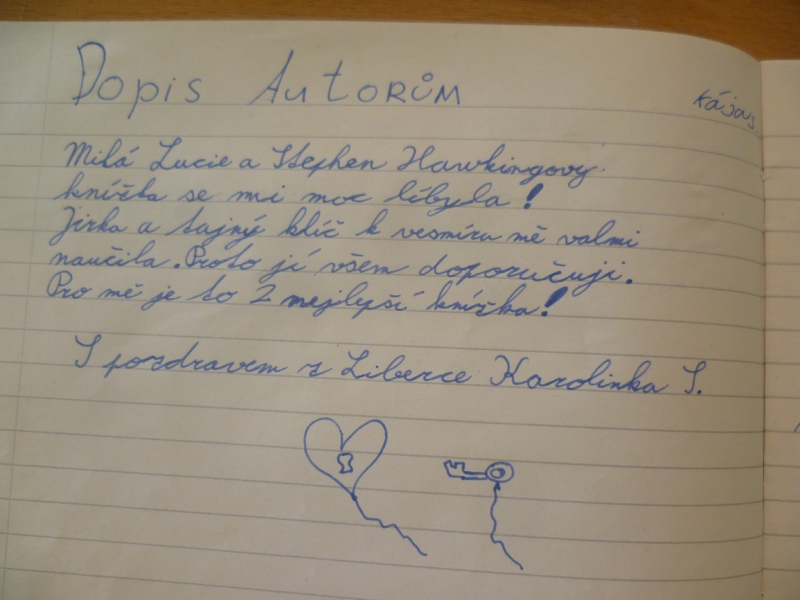 Dopis Autorům
Kájas.
Milá Lucie a Stephen Hawkingovy.
knížka se mi moc líbyla!
Jirka a tajný klíč k vesmíru mě valmi
naučila. Proto jí všem doporučuji.
Pro mě je to 2 nejlepší knížka!
S pozdravem z Liberce Karolinka S.